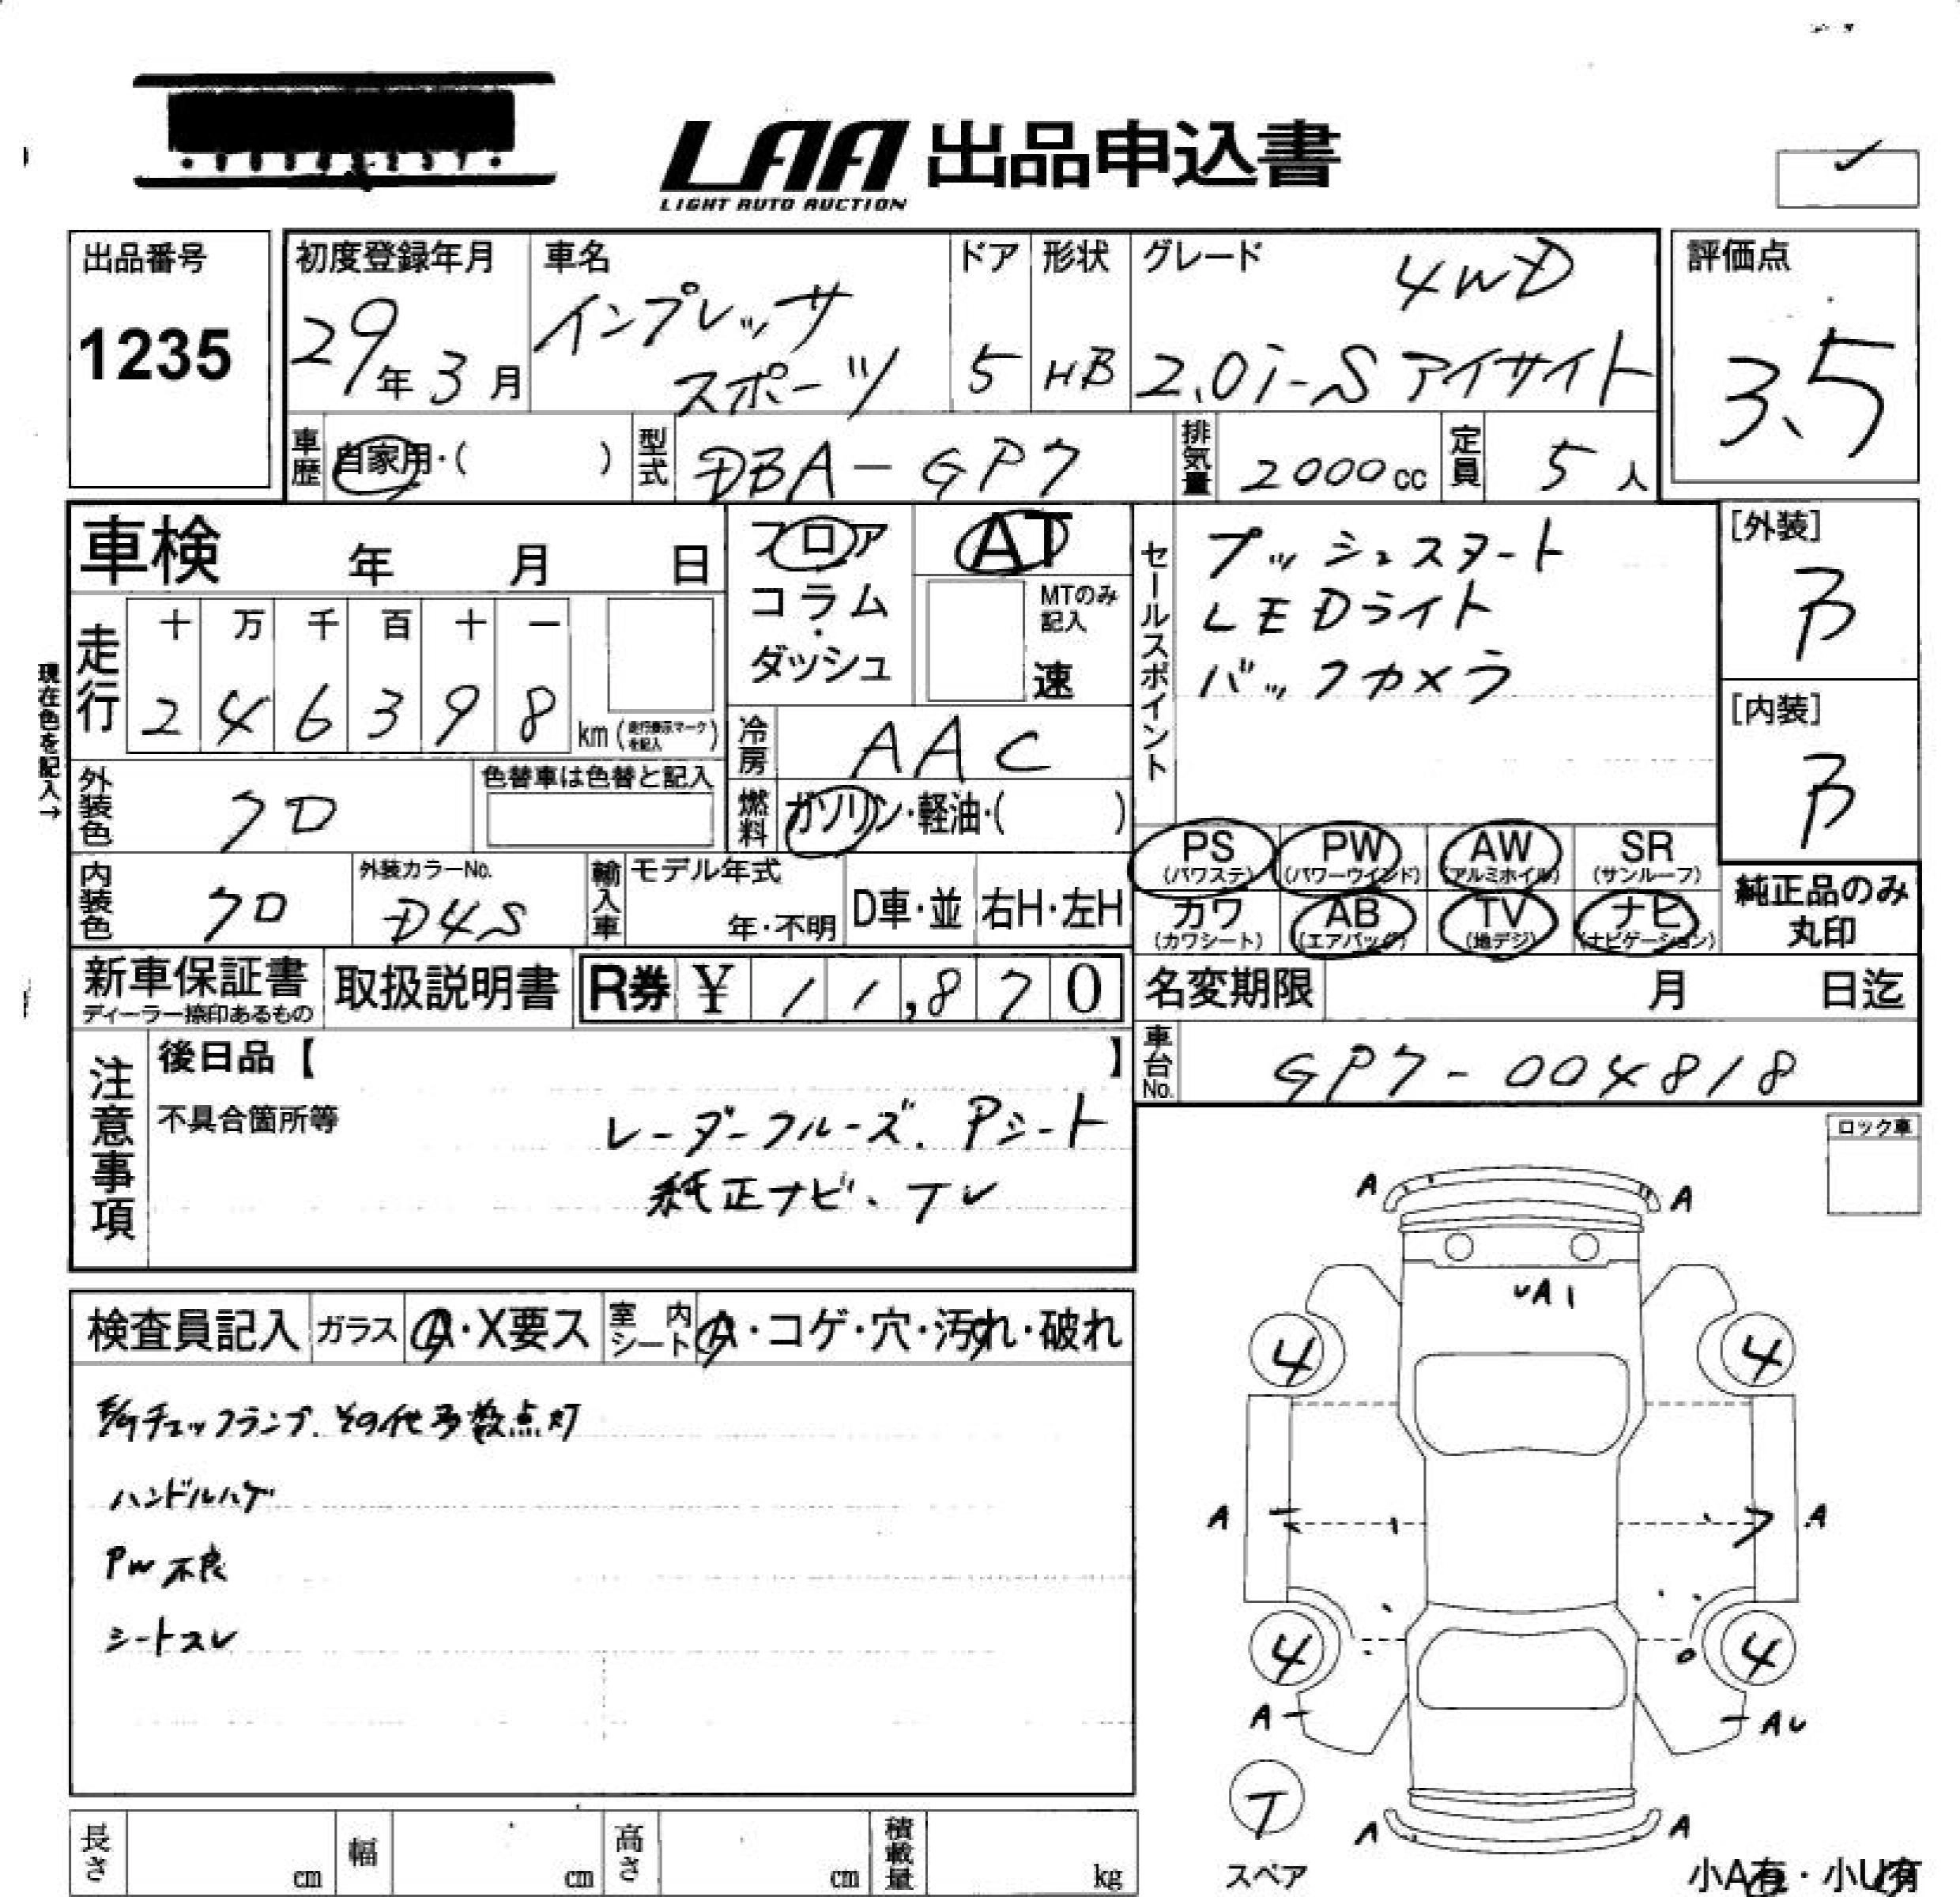 LAA 出品申込書
LIGHT AUTO AUCTION
出品番号
1235
初度登録年月
29年3月
車名
インプレッサ
スポーツ
ドア
5
形状
HB
グレード
4WD
2.0i-S アイサイト
評価点
3.5
車歴
自家用・( )
型式
DBA-GP7
排気量
2000cc
定員
5人
車検 年 月 日
フロア
コラム
・
ダッシュ
AT
MTのみ
記入
速
セールスポイント
プッシュスタート
LEDライト
バックカメラ
[外装]
B
[内装]
B
現在色を記入→
走行
十 万 千 百 十 一
2 4 6 3 9 8
km(走行表示マークを記入)
冷房
AAC
外装色
クロ
色替車は色替と記入
燃料
ガソリン・軽油・( )
PS
(パワステ)
PW
(パワーウインド)
AW
(アルミホイル)
SR
(サンルーフ)
内装色
クロ
外装カラーNo.
D4S
輸入車
モデル年式
年・不明
D車・並
右H・左H
カワ
(カワシート)
AB
(エアバッグ)
TV
(地デジ)
ナビ
(ナビゲーション)
純正品のみ
丸印
新車保証書
ディーラー捺印あるもの
取扱説明書
R券 ¥ 11,870
名変期限 月 日迄
車台No.
GP7-004818
注意事項
後日品【 】
不具合箇所等
レーダークルーズ、Pシート
純正ナビ・TV
ロック車
検査員記入
ガラス
A・X要ス
室内
シート
A・コゲ・穴・汚れ・破れ
チェックランプ、その他多数点灯
ハンドルハゲ
PW不良
シートスレ
A A
UA1
4 4
A A
4 4
A AU
T
スペア
A A
小A有・小U有
長さ cm
幅 cm
高さ cm
積載量 kg